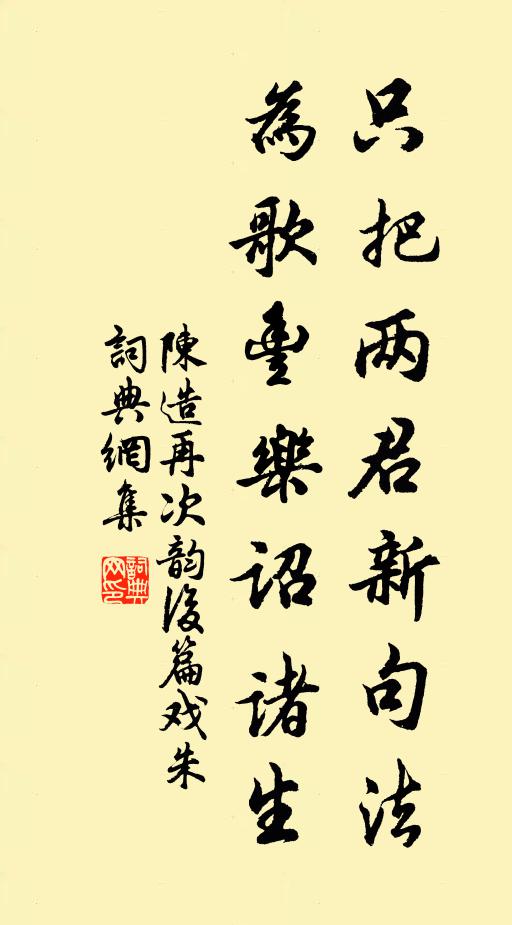 只把两君新句法
為歌豐樂詔諸生
陳造再次韵後篇戏朱
詞典網集
詞典网印